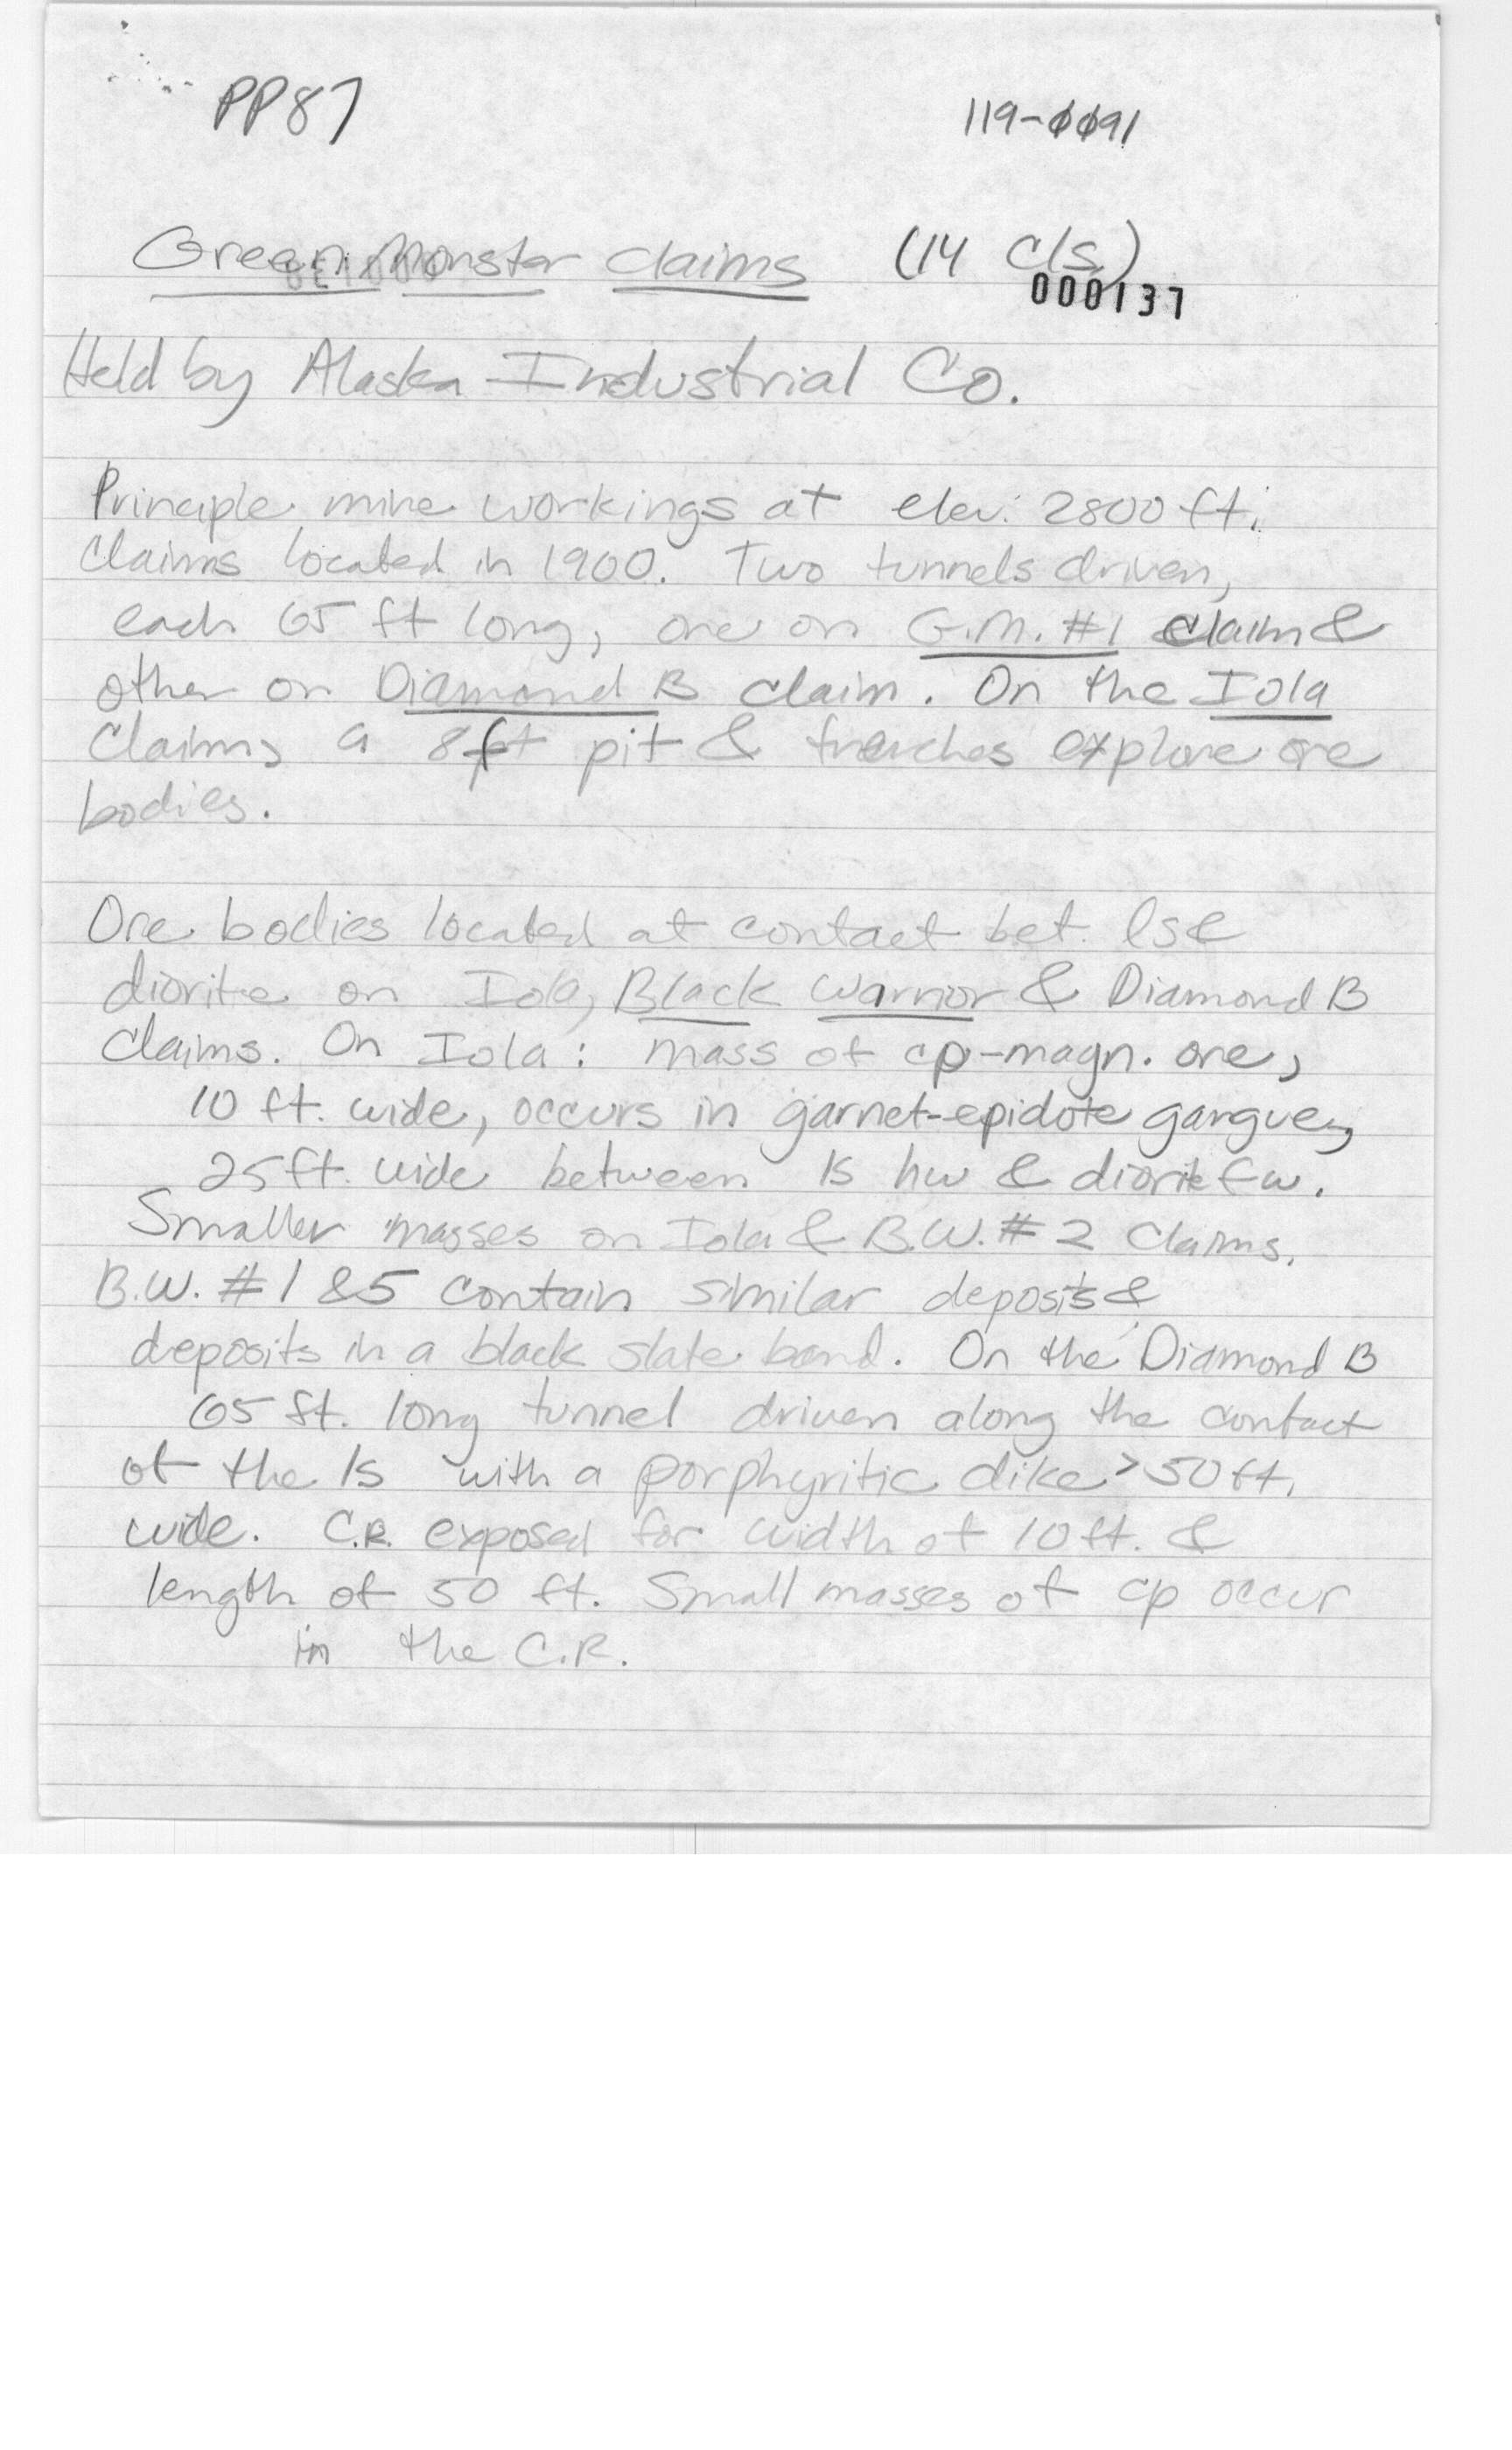 PP87
119-0091
Green Monster claims (14 cls.)
000137
Held by Alaska Industrial Co.
Principle mine workings at elev. 2800 ft.
Claims located in 1900. Two tunnels driven,
each 65 ft long, one on G.M. #1 claim &
other on Diamond B claim. On the Iola
Claim, a 8ft pit & trenches explore ore
bodies.
Ore bodies located at contact bet. ls &
diorite on Iola, Black Warrior & Diamond B
Claims. On Iola: mass of cp-magn. ore,
10 ft. wide, occurs in garnet-epidote gangue,
25 ft. wide between ls hw & diorite fw.
Smaller masses on Iola & B.W. #2 Claims.
B.W. #1 & 5 contain similar deposits &
deposits in a black slate band. On the Diamond B
65 ft. long tunnel driven along the contact
of the ls with a porphyritic dike > 50 ft.
wide. C.R. exposed for width of 10 ft. &
length of 50 ft. Small masses of cp occur
in the C.R.